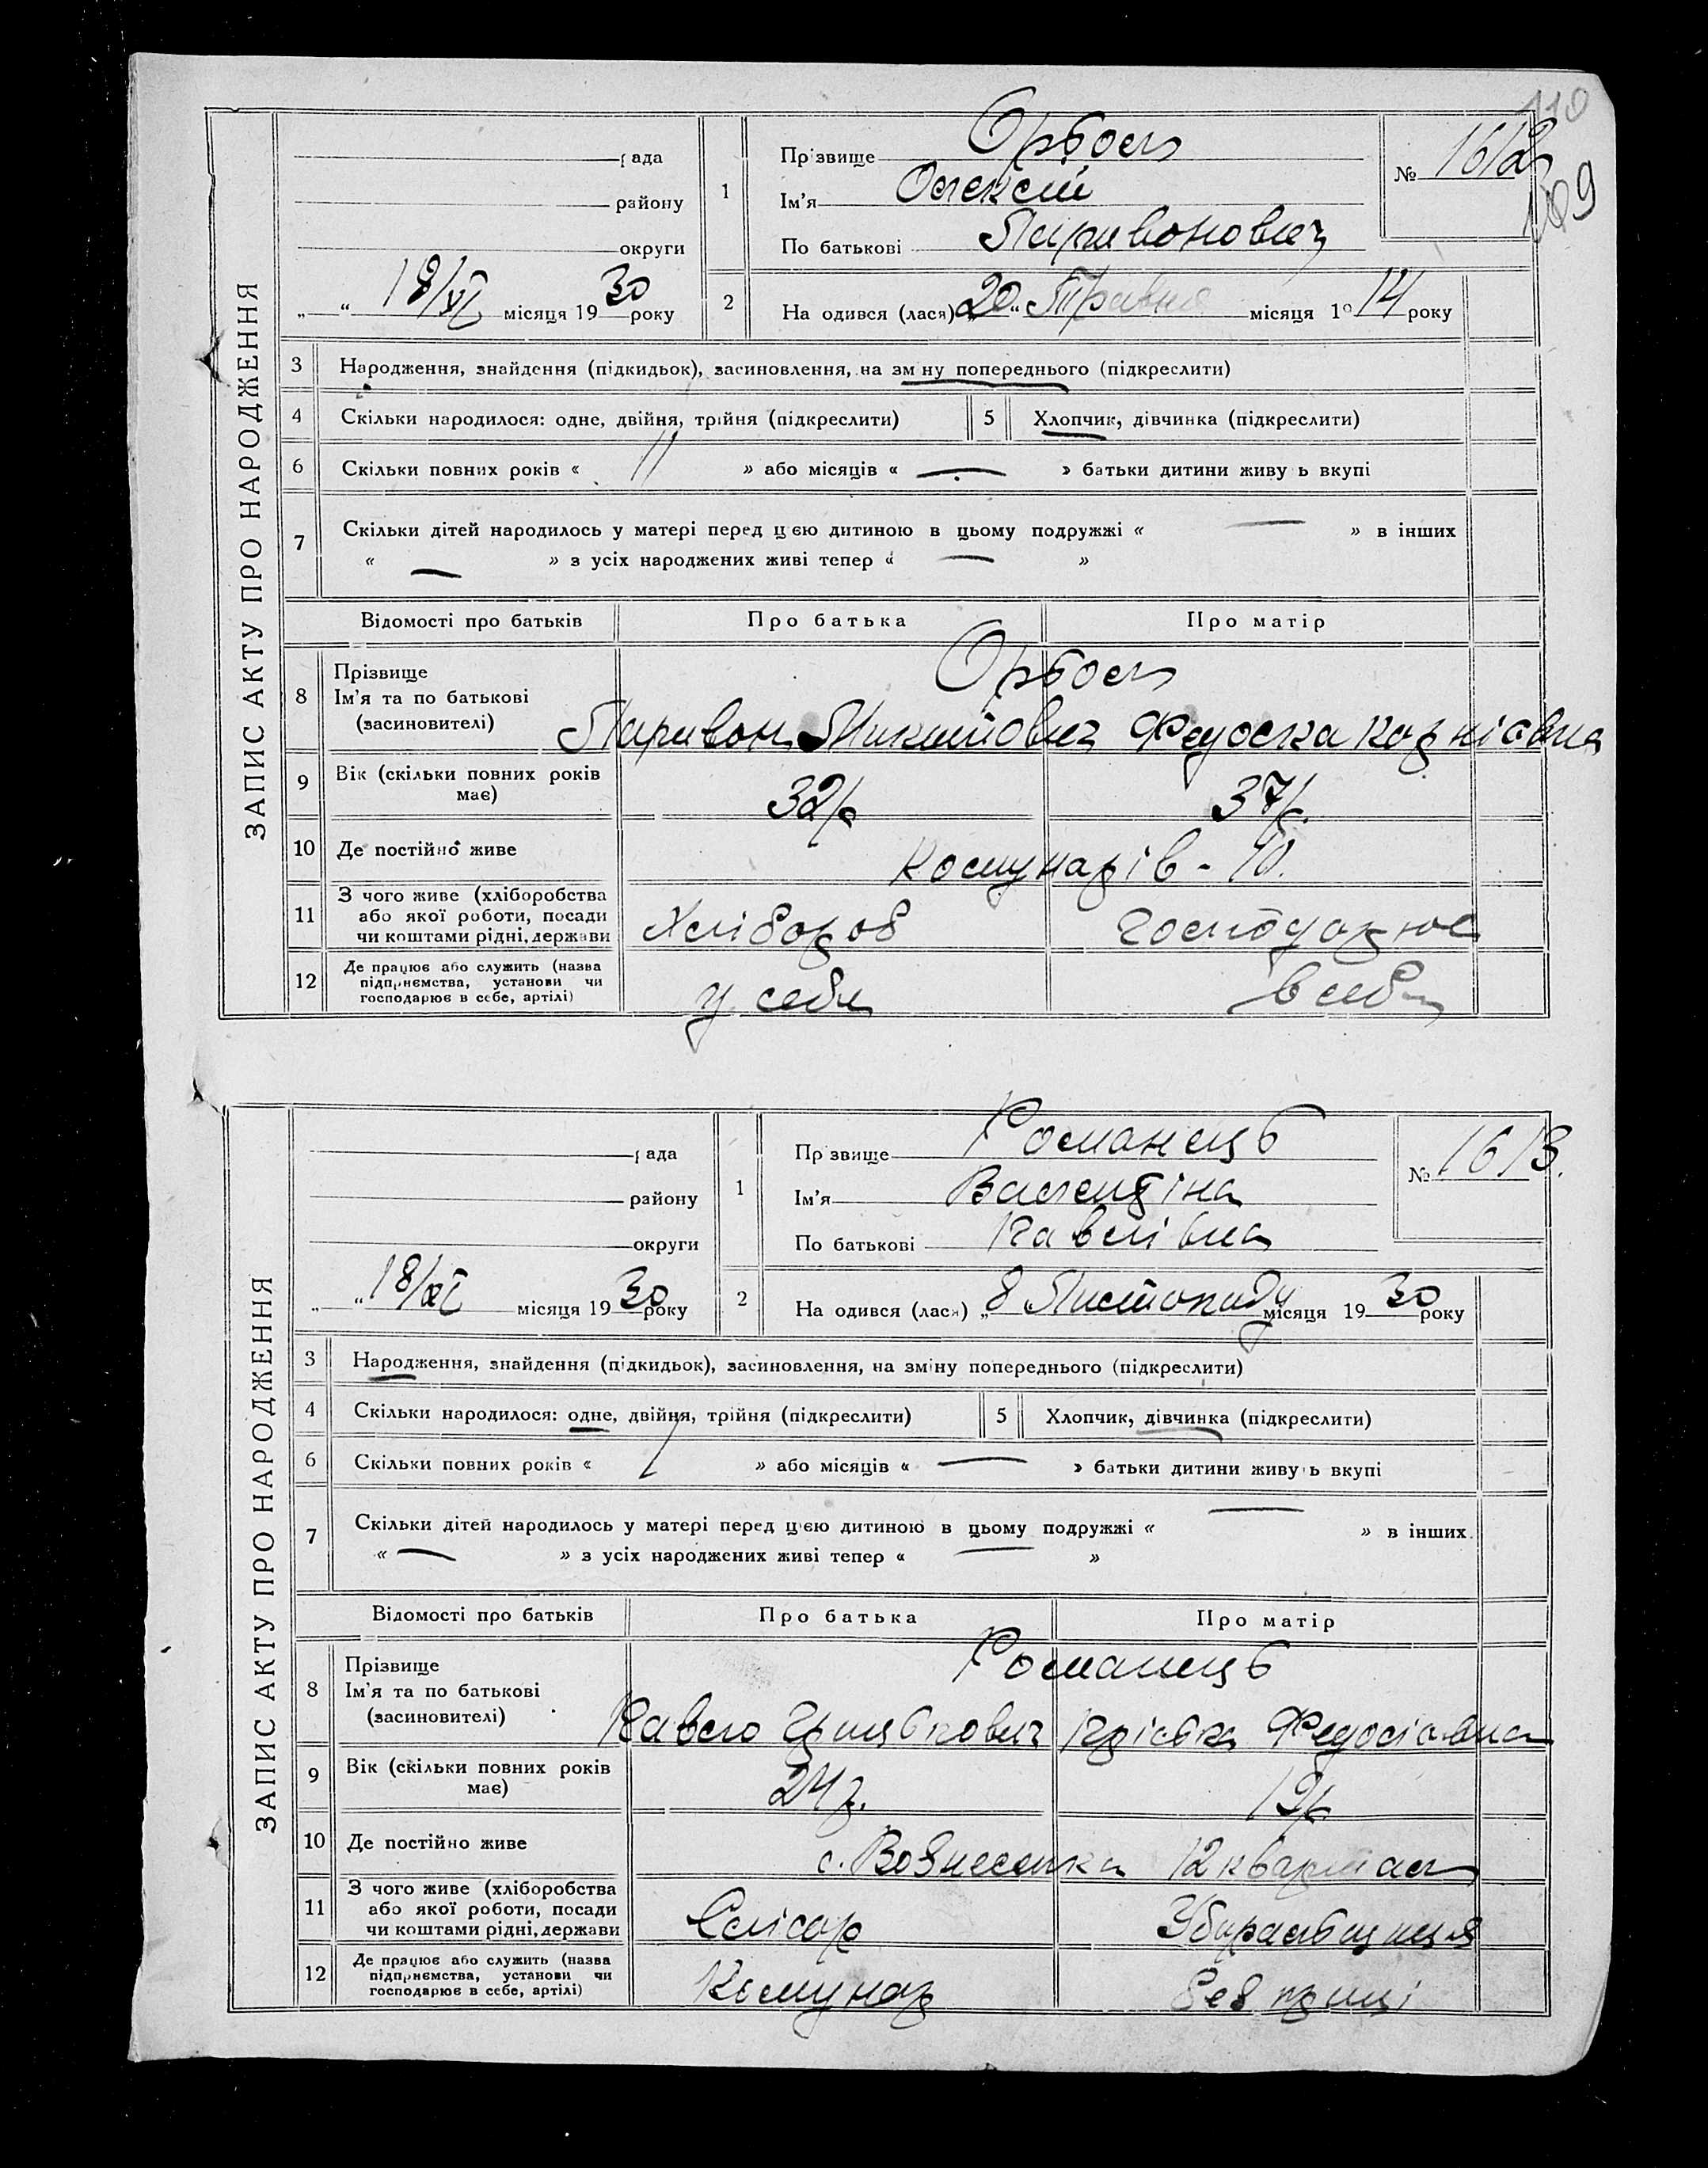 110
109
ЗАПИС АКТУ ПРО НАРОДЖЕННЯ
рада
району
округи
„ “ 18/XI місяця 1930 року
1
Прізвище Орбоєл
Ім'я Олексій
По батькові Паривонович
№ 1612
2
Народився (лася) „20“ Травня місяця 1914 року
3 Народження, знайдення (підкидьок), засиновлення, на зміну попереднього (підкреслити)
4 Скільки народилося: одне, двійня, трійня (підкреслити)
5 Хлопчик, дівчинка (підкреслити)
6 Скільки повних років « 11 » або місяців « — » батьки дитини живуть вкупі
7 Скільки дітей народилось у матері перед цією дитиною в цьому подружжі « — » в інших
« — » з усіх народжених живі тепер « — »
Відомості про батьків Про батька Про матір
8 Прізвище
Ім'я та по батькові
(засиновителі)
Орбоєл
Паривон Микитович Федоска Корніївна
9 Вік (скільки повних років має)
32 р. 37 р.
10 Де постійно живе
Комунарів - 90.
11 З чого живе (хліборобства
або якої роботи, посади
чи коштами рідні, держави
Хлібороб Господарює
12 Де працює або служить (назва
підприємства, установи чи
господарює в себе, артілі)
у себе в себе
ЗАПИС АКТУ ПРО НАРОДЖЕННЯ
рада
району
округи
„ “ 18/XI місяця 1930 року
1
Прізвище Романець
Ім'я Валентіна
По батькові Павлівна
№ 1613.
2
Народився (лася) „8 Листопаду місяця 1930 року
3 Народження, знайдення (підкидьок), засиновлення, на зміну попереднього (підкреслити)
4 Скільки народилося: одне, двійня, трійня (підкреслити)
5 Хлопчик, дівчинка (підкреслити)
6 Скільки повних років « 1 » або місяців « — » батьки дитини живуть вкупі
7 Скільки дітей народилось у матері перед цією дитиною в цьому подружжі « — » в інших
« — » з усіх народжених живі тепер « — »
Відомості про батьків Про батька Про матір
8 Прізвище
Ім'я та по батькові
(засиновителі)
Романець
Павло Грицькович Пріська Федосіївна
9 Вік (скільки повних років має)
24 р. 19 р.
10 Де постійно живе
с. Вознесенка 12 квартал
11 З чого живе (хліборобства
або якої роботи, посади
чи коштами рідні, держави
Слісар Збиральниця
12 Де працює або служить (назва
підприємства, установи чи
господарює в себе, артілі)
Комунар без праці